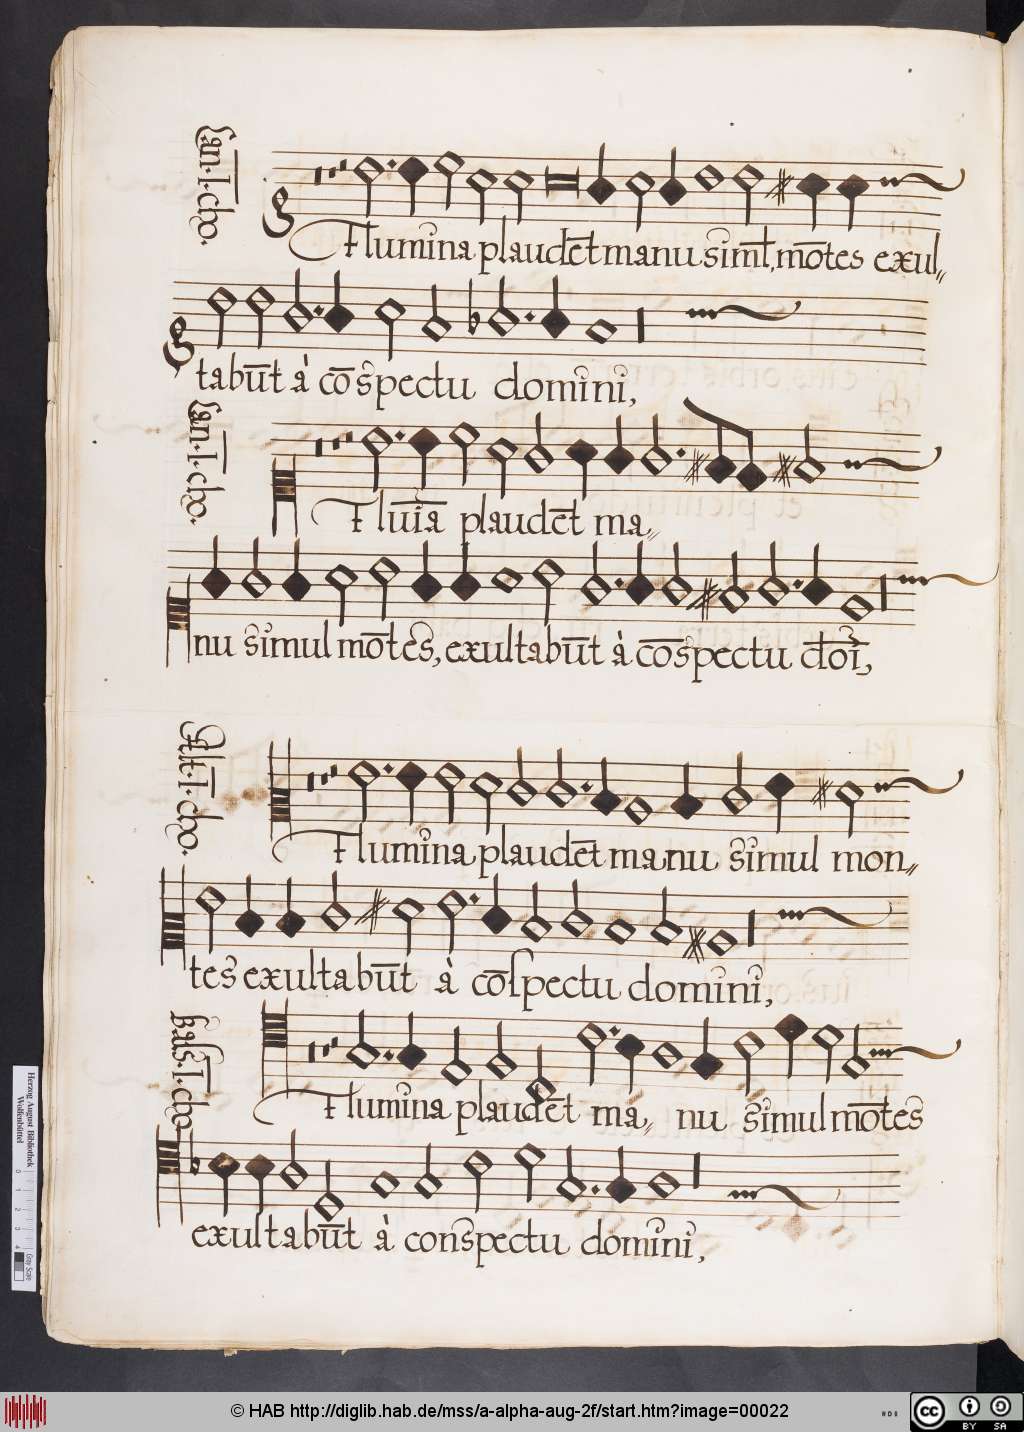 Can. I. cho.
Flumina plaudēt manu simł, mōtes exul„
tabūt à cōspectu domini,
Can. I. cho.
Flūīa plaudēt ma„
nu simul mōtes, exultabūt à cōspectu dōī,
Alt. I. cho.
Flumina plaudēt manu simul mon„
tes exultabūt à cōspectu domini,
Bass. I. cho
Flumina plaudēt ma„ nu simul mōtes
exultabūt à conspectu domini,
Herzog August Bibliothek
Wolfenbüttel
0 1 2 3 4
© HAB http://diglib.hab.de/mss/a-alpha-aug-2f/start.htm?image=00022
cc BY SA